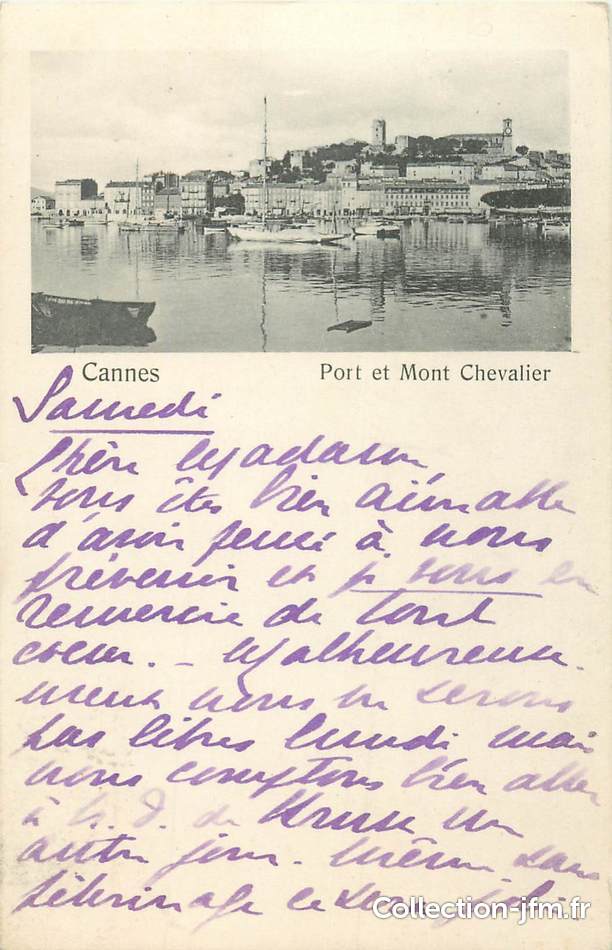 Cannes Port et Mont Chevalier
Samedi
Chère Madame,
vous êtes bien aimable
d'avoir pensé à nous
prévenir et je vous en
remercie de tout
coeur. – Malheureuse-
ment nous ne serons
pas libres lundi mais
nous comptons bien aller
à N. D. de un
autre jour. même sans
pèlerinage ce sera
Collection-jfm.fr